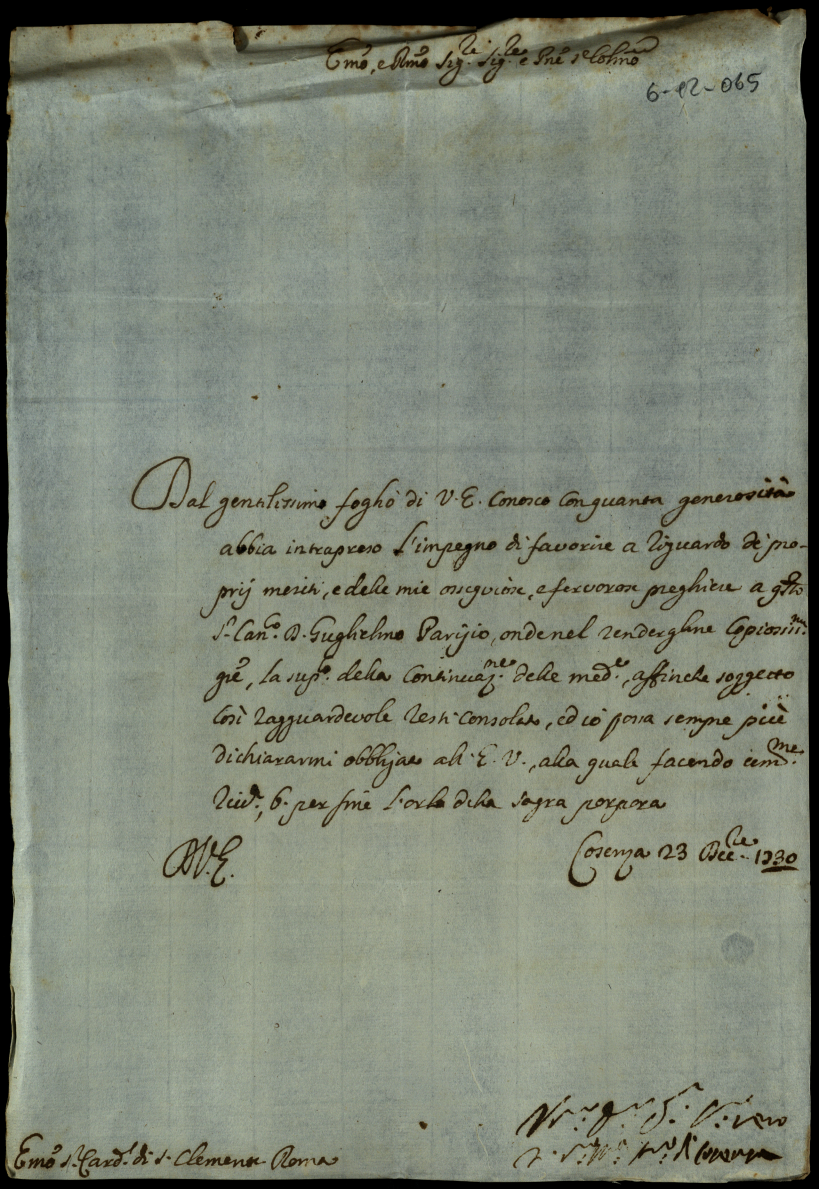 Emo, e Rmo Sig.re Sig.re e Pne Colmo
6-12-065
Dal gentilissimo foglio di V. E. conosco con quanta generosità
abbia intrapreso l'impegno di favorire a riguardo de' pro-
prij meriti, e delle mie ossequiose, e fervorose preghiere a qsto
Sr. Can.co D. Guglielmo Parijio, onde nel rendergline copiosissi.me
gre, la sup.co della continuaz.ne delle med.e, affinche soggetto
così ragguardevole resti consolato, ed io possa sempre più
dichiararmi obbligato all' E. V., alla quale facendo um.me
river., b. per fine l'orlo della sagra porpora
D V. E.
Cosenza 23 Dec.re 1730
Emo Sr. Card.l di S. Clemente Roma